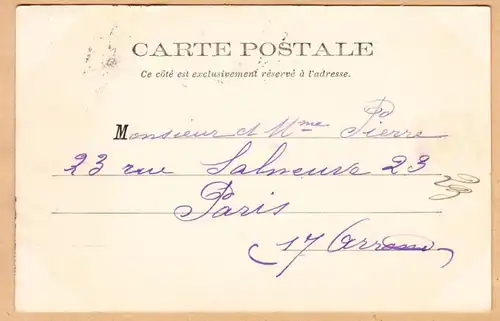 CARTE POSTALE
Ce côté est exclusivement réservé à l'adresse.
Monsieur et Mme Pierre
23 rue Salneuve 23
23
Paris
17 Arr